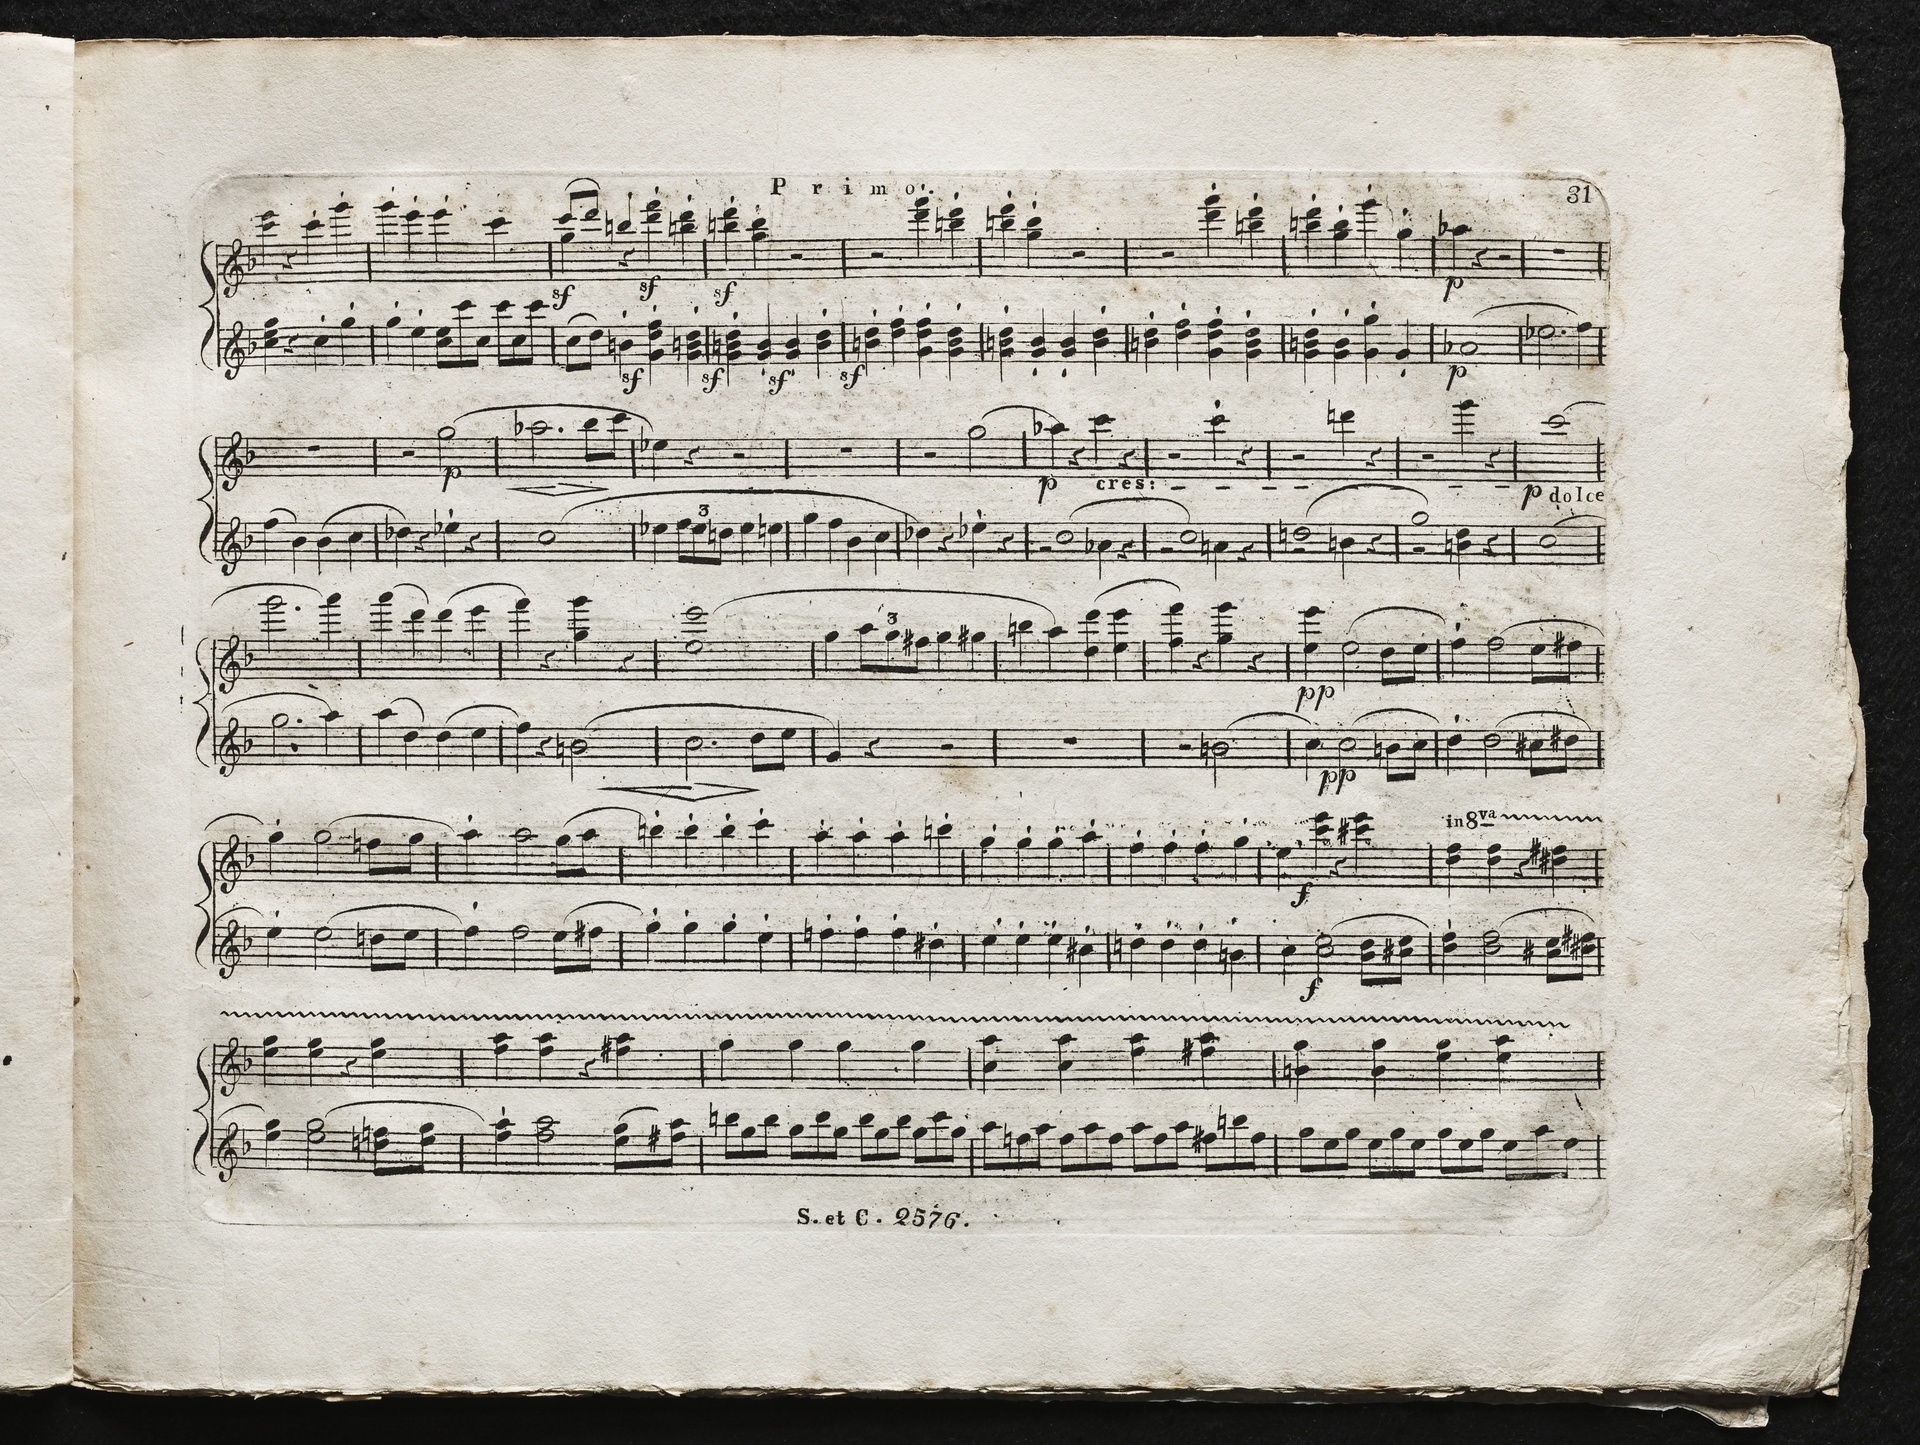 Primo.
31
sf sf sf
p
sf sf sf sf
p
p p cres: p dolce
3
3
pp
pp
in 8va
f
f
S. et C. 2576.